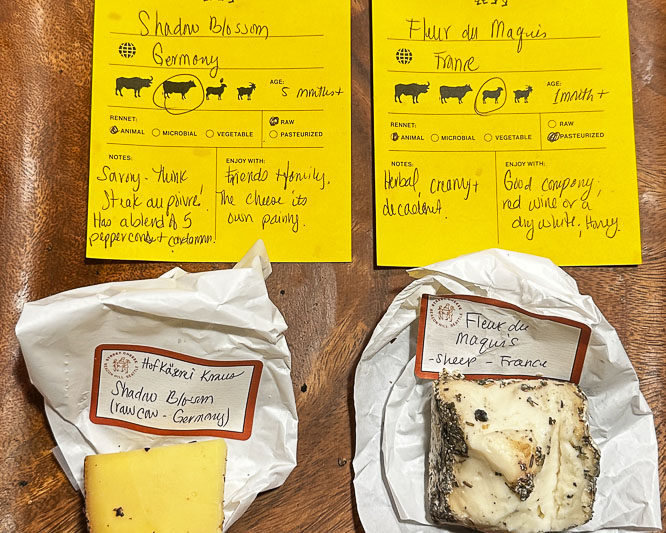 Shadow Blossom
Germany
AGE:
5 months+
RENNET:
ANIMAL
MICROBIAL
VEGETABLE
RAW
PASTEURIZED
NOTES:
Savory - Think
Steak au poivre!
Has a blend of 5
peppercorns + cardamom.
ENJOY WITH:
Friends + family.
The cheese its
own pairing.
Fleur du Maquis
France
AGE:
1 month +
RENNET:
ANIMAL
MICROBIAL
VEGETABLE
RAW
PASTEURIZED
NOTES:
Herbal, creamy +
decadent.
ENJOY WITH:
Good company,
red wine or a
dry white, Honey.
STREET CHEESE
BEACON HILL, SEATTLE
Hofkäserei Kraus
Shadow Blossom
(raw cow - Germany)
Fleur du
Maquis
- sheep - France